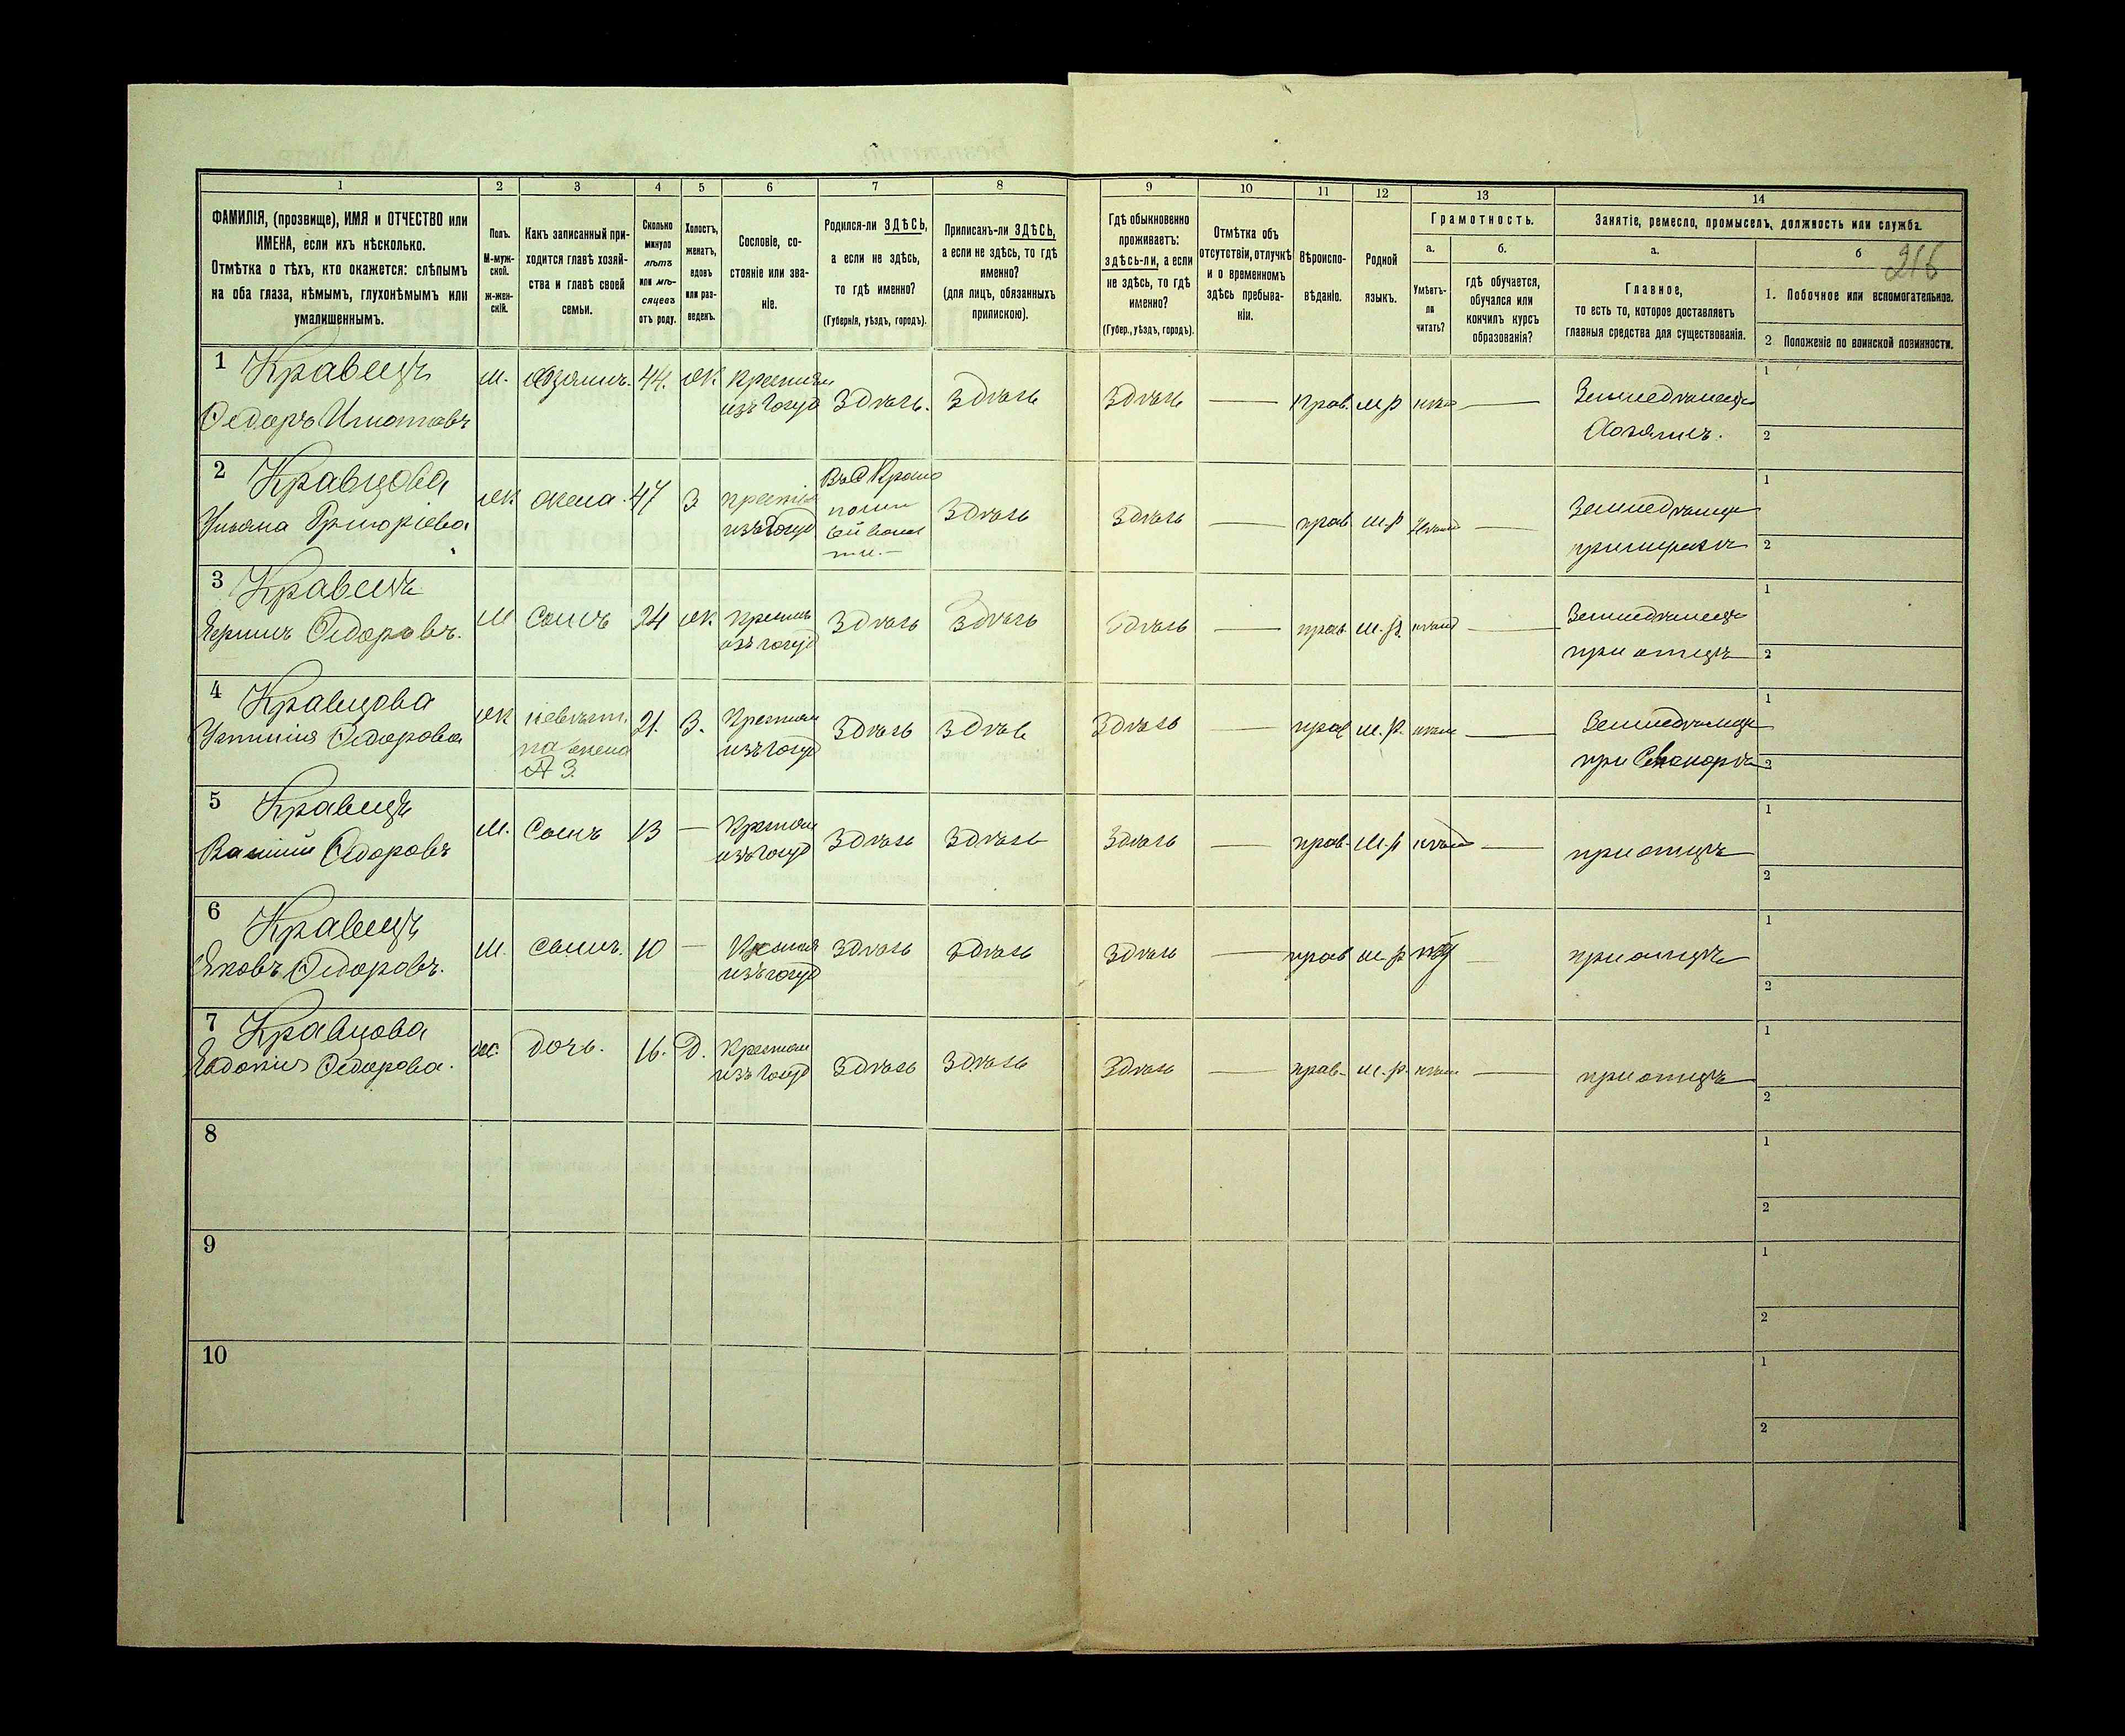 216
1 2 3 4 5 6 7 8 9 10 11 12 13 14
ФАМИЛІЯ, (прозвище), ИМЯ и ОТЧЕСТВО или
ИМЕНА, если ихъ нѣсколько.
Отмѣтка о тѣхъ, кто окажется: слѣпымъ
на оба глаза, нѣмымъ, глухонѣмымъ или
умалишеннымъ.
Полъ.
М-муж-
ской.
ж-жен-
скій.
Какъ записанный при-
ходится главѣ хозяй-
ства и главѣ своей
семьи.
Сколько
минуло
лѣтъ
или мѣ-
сяцевъ
отъ роду.
Холостъ,
женатъ,
вдовъ
или раз-
веденъ.
Сословіе, со-
стояніе или зва-
ніе.
Родился-ли ЗДѢСЬ,
а если не здѣсь,
то гдѣ именно?
(Губернія, уѣздъ, городъ).
Приписанъ-ли ЗДѢСЬ,
а если не здѣсь, то гдѣ
именно?
(для лицъ, обязанныхъ
припискою).
Гдѣ обыкновенно
проживаетъ:
здѣсь-ли, а если
не здѣсь, то гдѣ
именно?
(Губер., уѣздъ, городъ).
Отмѣтка объ
отсутствіи, отлучкѣ
и о временномъ
здѣсь пребыва-
ніи.
Вѣроиспо-
вѣданіе.
Родной
языкъ.
Грамотность.
а.
Умѣетъ-
ли
читать?
б.
гдѣ обучается,
обучался или
кончилъ курсъ
образованія?
Занятіе, ремесло, промыселъ, должность или служба.
а.
Главное,
то есть то, которое доставляетъ
главныя средства для существованія.
б
1. Побочное или вспомогательное.
2 Положеніе по воинской повинности.
1 Кравецъ
Ѳедоръ Игнатовъ
м. хозяинъ. 44. ж.
изъ госуд
Здѣсь. Здѣсь Здѣсь — прав. м р — Земледѣлецъ
Хозяинъ.
1
2
2 Кравцова
Ульяна Григоріева
ж жена. 47 З
изъ госуд
Здѣсь Здѣсь — прав м.р —
1
2
3 Кравецъ
Ѳедоровъ.
м Сынъ 24 ж.
изъ госуд
Здѣсь Здѣсь Здѣсь — прав м.р. — Земледѣлецъ
при отцѣ
1
2
4 Кравцова
Ѳедорова
ж невѣст.
ка жена
№ 3.
21. З.
изъ госуд
Здѣсь Здѣсь Здѣсь — прав м.р. —
при Свекорѣ
1
2
5 Кравецъ
Ѳедоровъ
М. Сынъ 13 —
изъ госуд
Здѣсь Здѣсь Здѣсь — прав. м.р — при отцѣ
1
2
6 Кравецъ
Яковъ Ѳедоровъ.
м. сынъ. 10 —
изъ госуд
Здѣсь Здѣсь Здѣсь — прав м.р — при отцѣ
1
2
7 Кравцова
Ѳедорова.
жс. дочь. 16. Д.
изъ госуд
Здѣсь Здѣсь Здѣсь — прав. м.р. — при отцѣ
1
2
8
1
2
9
1
2
10
1
2